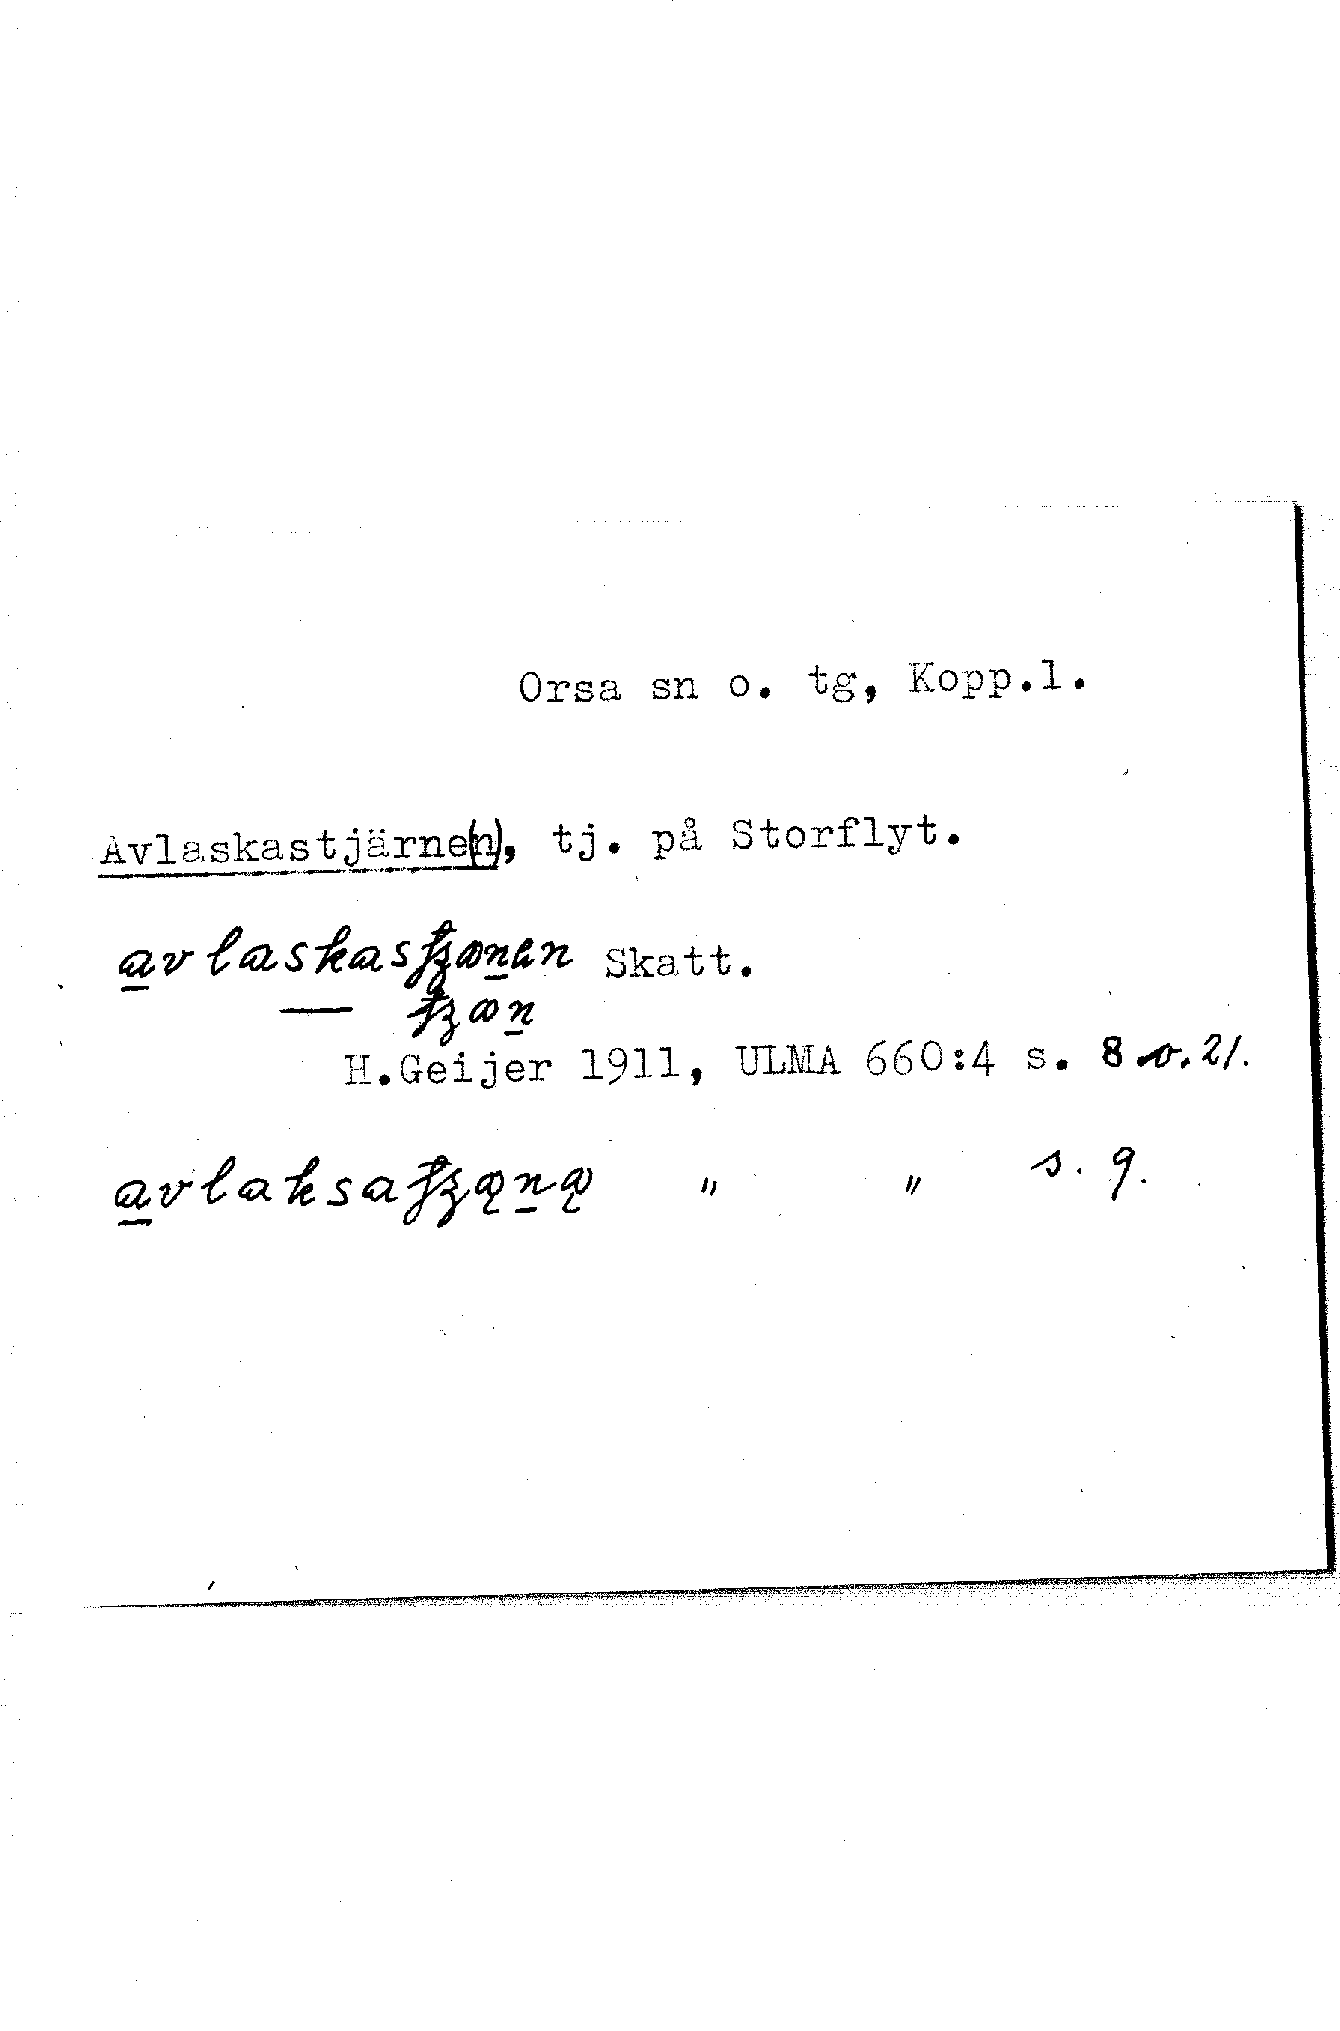 Orsa sn o. tg, Kopp.l.
Avlaskastjärne(n), tj. på Storflyt.
Skatt.
—
H.Geijer 1911, ULMA 660:4 s. 8 o. 21.
" " s. 9.